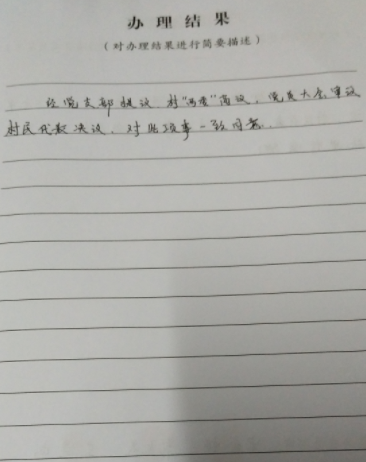 办理结果
（对办理结果进行简要描述）
经党支部提议 村“两委”商议，党员大会审议
村民代表决议，对此项事一致同意.